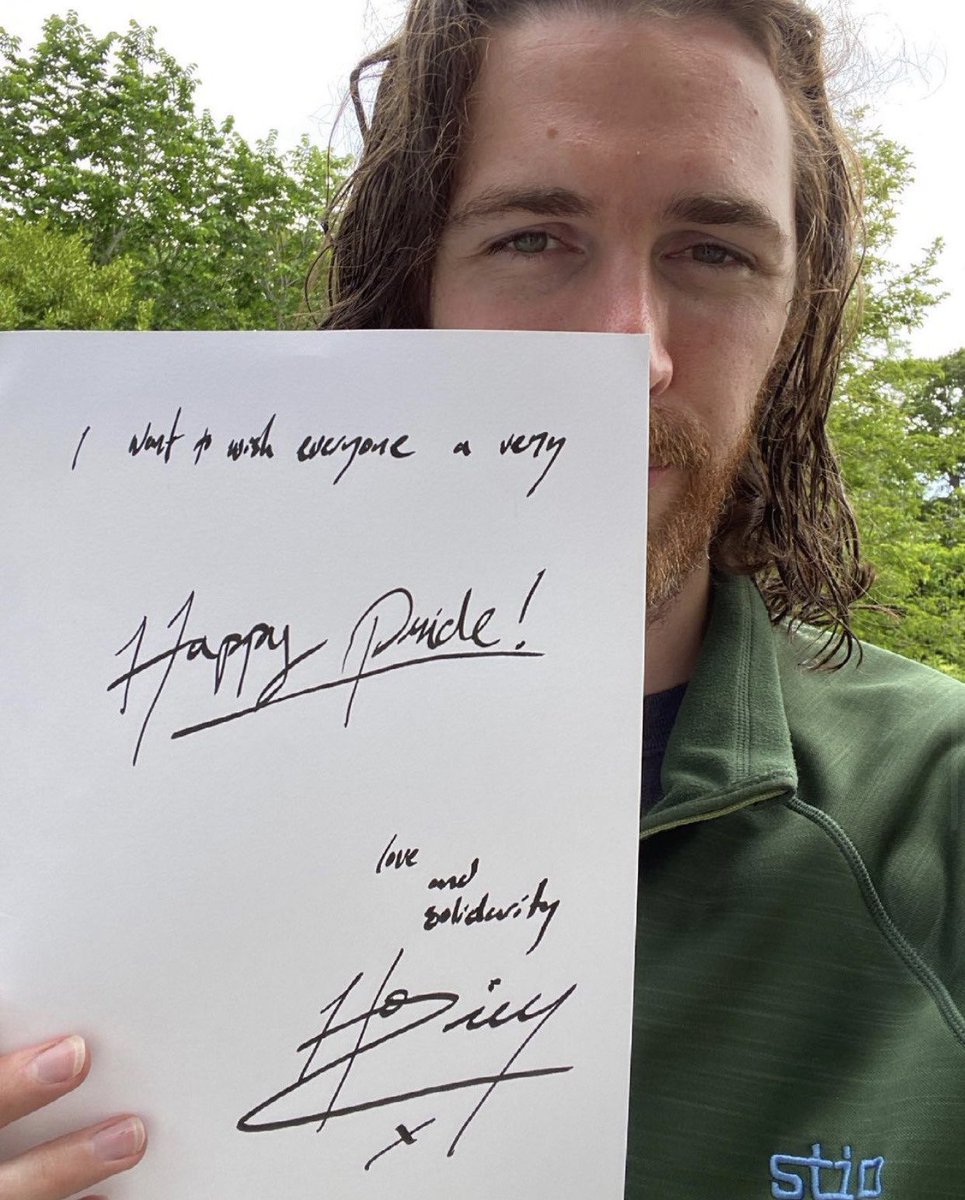 I want to wish everyone a very
Happy Pride!
love
and
solidarity
Hozier
x
stio